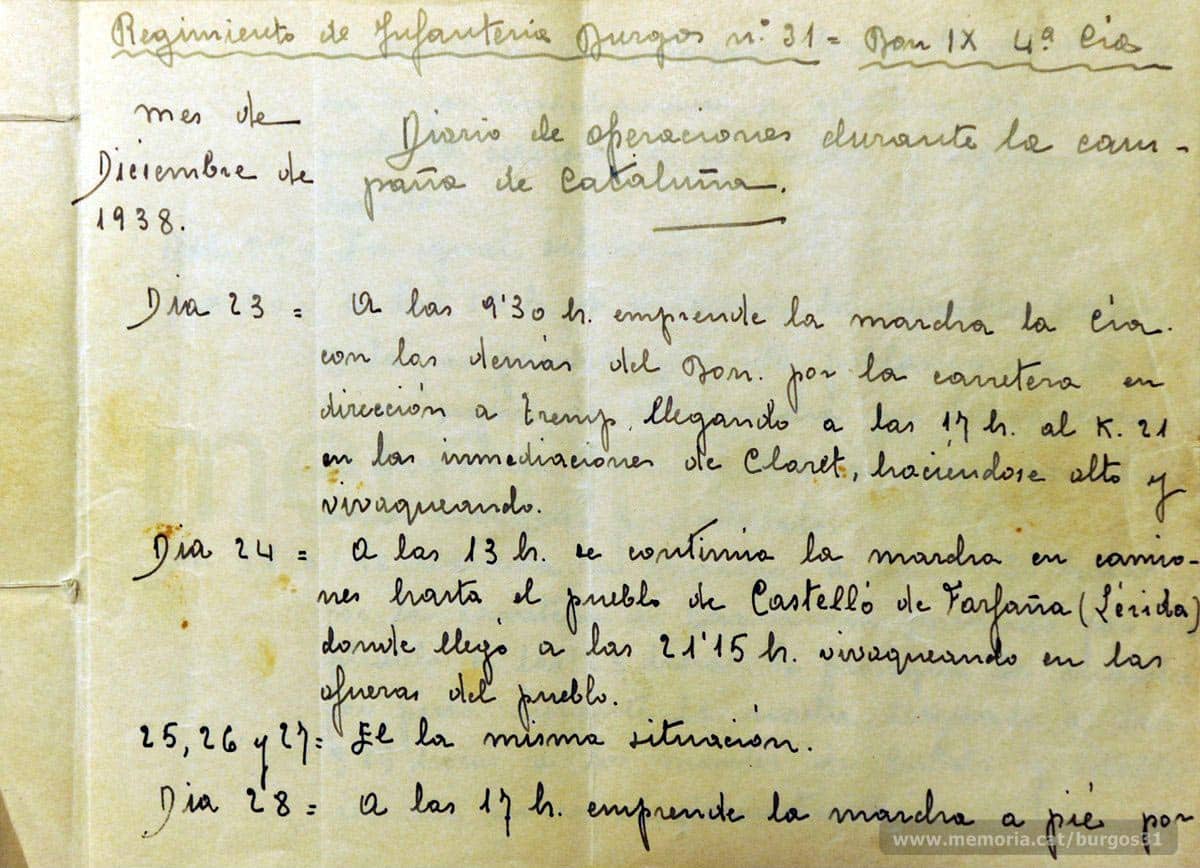 Regimiento de Infantería Burgos nº 31 = Bon IX 4ª Cía
mes de
Diciembre de
1938.
Diario de operaciones durante la cam-
paña de Cataluña.
Dia 23 = A las 9'30 h. emprende la marcha la Cía.
con las demás del Bon. por la carretera en
dirección a Tremp, llegando a las 17 h. al K. 21
en las inmediaciones de Claret, haciéndose alto y
vivaqueando.
Dia 24 = A las 13 h. se continúa la marcha en camio-
nes hasta el pueblo de Castelló de Farfaña (Lérida)
donde llegó a las 21'15 h. vivaqueando en las
afueras del pueblo.
25, 26 y 27 = En la misma situación.
Dia 28 = A las 17 h. emprende la marcha a pié por
www.memoria.cat/burgos31